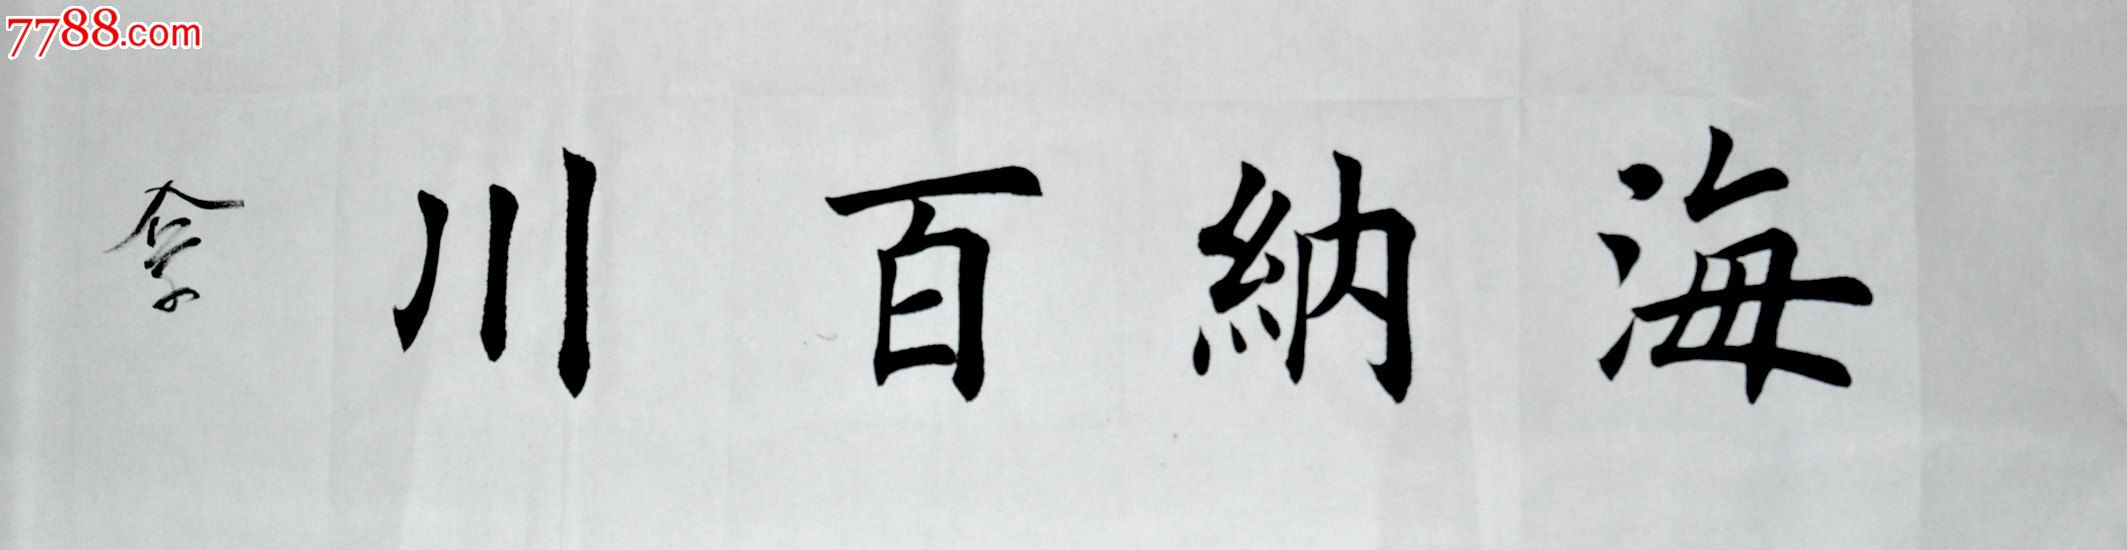 7788.com
海納百川